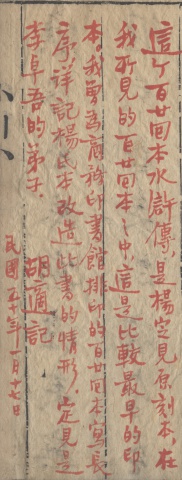 這个百廿囘本水滸傳，是楊定見原刻本，在
我所見的百廿囘本之中，這是比較最早的印
本。我曾爲商務印書館排印的百廿囘本寫長
序，詳記楊氏本改造此書的情形。定見是
李卓吾的弟子。
胡適記
民國五十年一月十七日